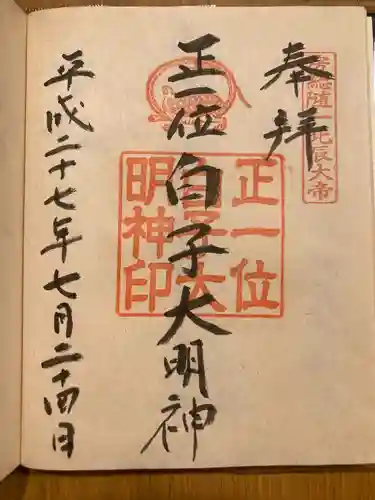 奉拝
房総随一北辰大帝
正一位白子大明神
正一位
白子大
明神印
平成二十七年七月二十四日